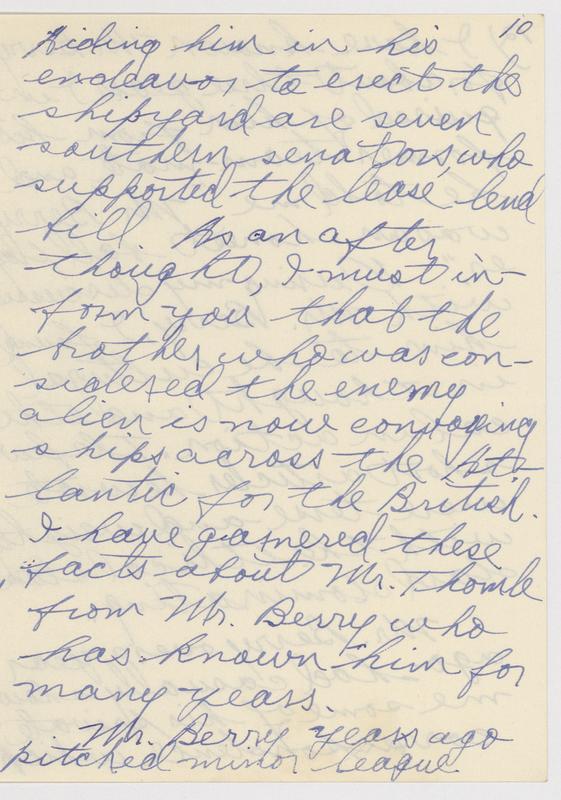 10
Aiding him in his
endeavor to erect the
shipyard are seven
southern senators, who
supported the lease lend
bill. As an after
thought, I must in-
form you that the
brother who was con-
sidered the enemy
alien is now convoying
ships across the At-
lantic for the British.
I have garnered these
facts about Mr. Thomle
from Mr. Berry who
has known him for
many years.
Mr. Berry years ago
pitched minor league